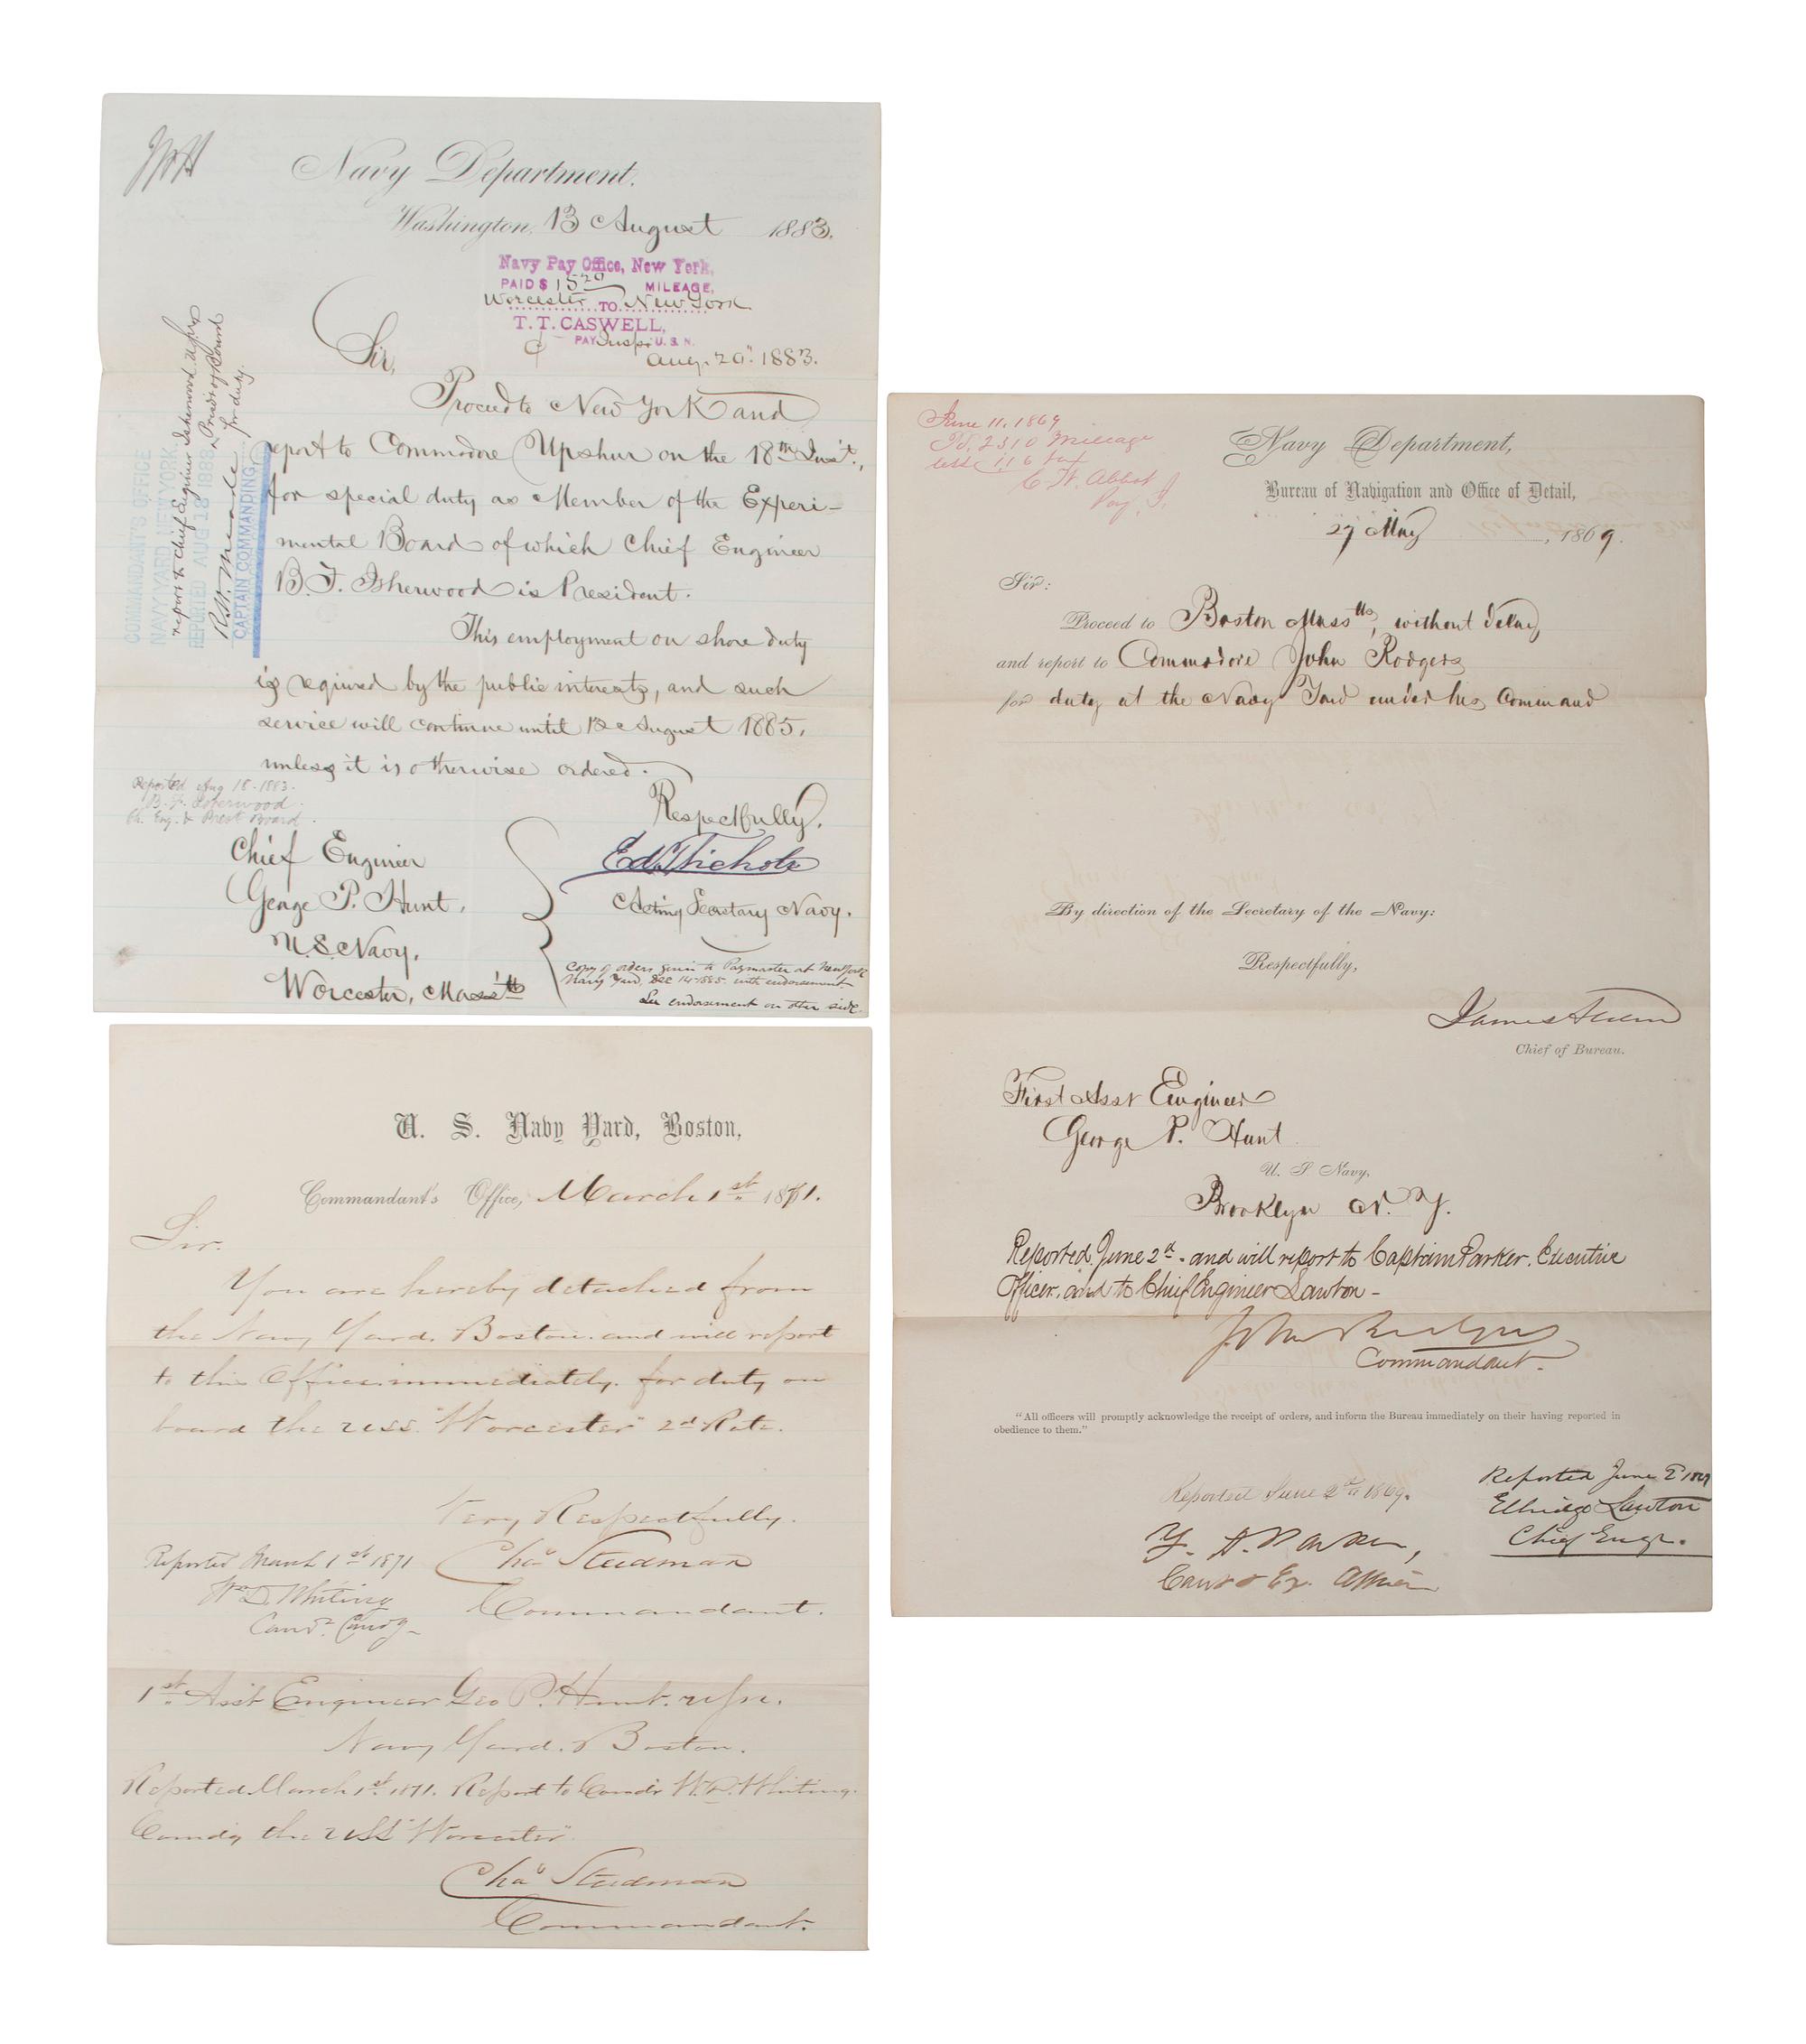 Navy Department.
Washington, 13 August 1883.
Navy Pay Office, New York.
PAID $ 15 20 MILEAGE,
Worcester TO New York
T. T. CASWELL,
PAY Insp. U. S. N.
Aug. 20". 1883.
Sir,
Proceed to New York and
report to Commodore Upshur on the 18th Inst.,
for special duty as Member of the Experi-
mental Board of which Chief Engineer
B. F. Isherwood is President.
This employment on shore duty
is required by the public interests, and such
service will continue until 12 August 1885,
unless it is otherwise ordered.
Respectfully,
Ed. T. Nichols
Acting Secretary Navy.
Chief Engineer
George P. Hunt,
U.S. Navy,
Worcester, Mass'tts
Reported Aug 18. 1883.
B. F. Isherwood
Ch. Eng. & Prest Board.
Copy of orders given to Paymaster at New York
Navy Yard, Dec 14. 1885. with endorsement
See endorsement on other side.
COMMANDANT'S OFFICE
NAVY YARD NEW YORK
REPORTED AUG 18 1883
report to Chief Engineer Isherwood
Presdt of Board
for duty.
R.W. Meade
CAPTAIN COMMANDING
U. S. Navy Yard, Boston,
Commandant's Office, March 1st 1871.
Sir.
You are hereby detached from
the Navy Yard. Boston. and will report
to this Office immediately. for duty on
board the U.S.S. "Worcester" 2d Rate.
Very Respectfully.
Chas Steedman
Commandant.
Reported March 1st 1871
Wm D. Whiting
Comdr. Comdg
1st Asst Engineer Geo P. Hunt. U.S.N.
Navy Yard. Boston.
Reported March 1st 1871. Report to Comdr W.D. Whiting.
Comdg the USS "Worcester"
Chas Steedman
Commandant.
June 11. 1869
Pd. 23 10 Mileage
less 1.16 tax
C. W. Abbot
Pay. I.
Navy Department,
Bureau of Navigation and Office of Detail,
27 May, 1869.
Sir:
Proceed to Boston Masstts, without delay
and report to Commodore John Rodgers
for duty at the Navy Yard under his Command
By direction of the Secretary of the Navy:
Respectfully,
James Alden
Chief of Bureau.
First Asst Engineer
George P. Hunt
U. S Navy,
Brooklyn N. Y.
Reported June 2d. and will report to Captain Parker. Executive
Officer. and to Chief Engineer Lawton -
John Rodgers
Commandant.
"All officers will promptly acknowledge the receipt of orders, and inform the Bureau immediately on their having reported in
obedience to them."
Reported June 2d 1869.
F. A. Parker,
Capt & Ex. Officer
Reported June 2d 1869
Elbridge Lawton
Chief Engr.